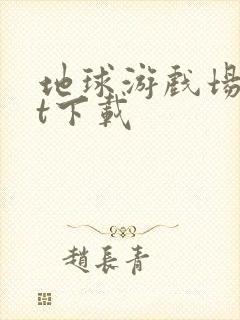 地球游戲場
t下載
趙長青